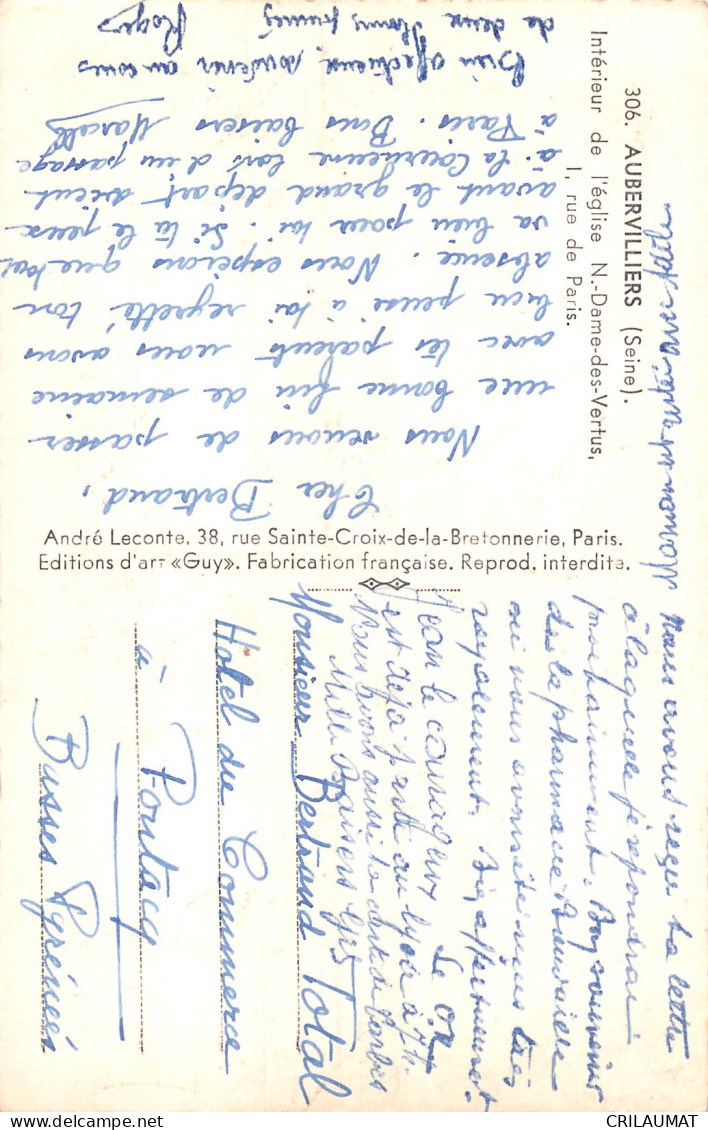 306. AUBERVILLIERS (Seine).
Intérieur de l'église N.-Dame-des-Vertus,
1, rue de Paris.
Cher Bertrand,
Nous venons de passer
une bonne fin de semaine
avec tes parents nous avons
bien pensé à toi regretté ton
absence. Nous espérons que tout
va bien pour toi. Si tu le peux
avant le grand départ vient
à la Courneuve lors d'un passage
à Paris. Bons baisers Marcelle
Bien affectueux souvenir au cours
de deux
Roger
André Leconte, 38, rue Sainte-Croix-de-la-Bretonnerie, Paris.
Editions d'art «Guy». Fabrication française. Reprod. interdite.
Nous avons reçu ta lettre
à laquelle je répondrai
prochainement. Bon souvenir
de la pharmacie
où nous avons été reçus très
royalement. Bien affectueuset.
Jean le courageux
est déjà parti au lycée à 7h
Nous avons aussi la carte de Tarbes
Mille Baisers
Monsieur Bertrand Total
Hotel du Commerce
à
Pontacq
Basses Pyrénées
CRILAUMAT